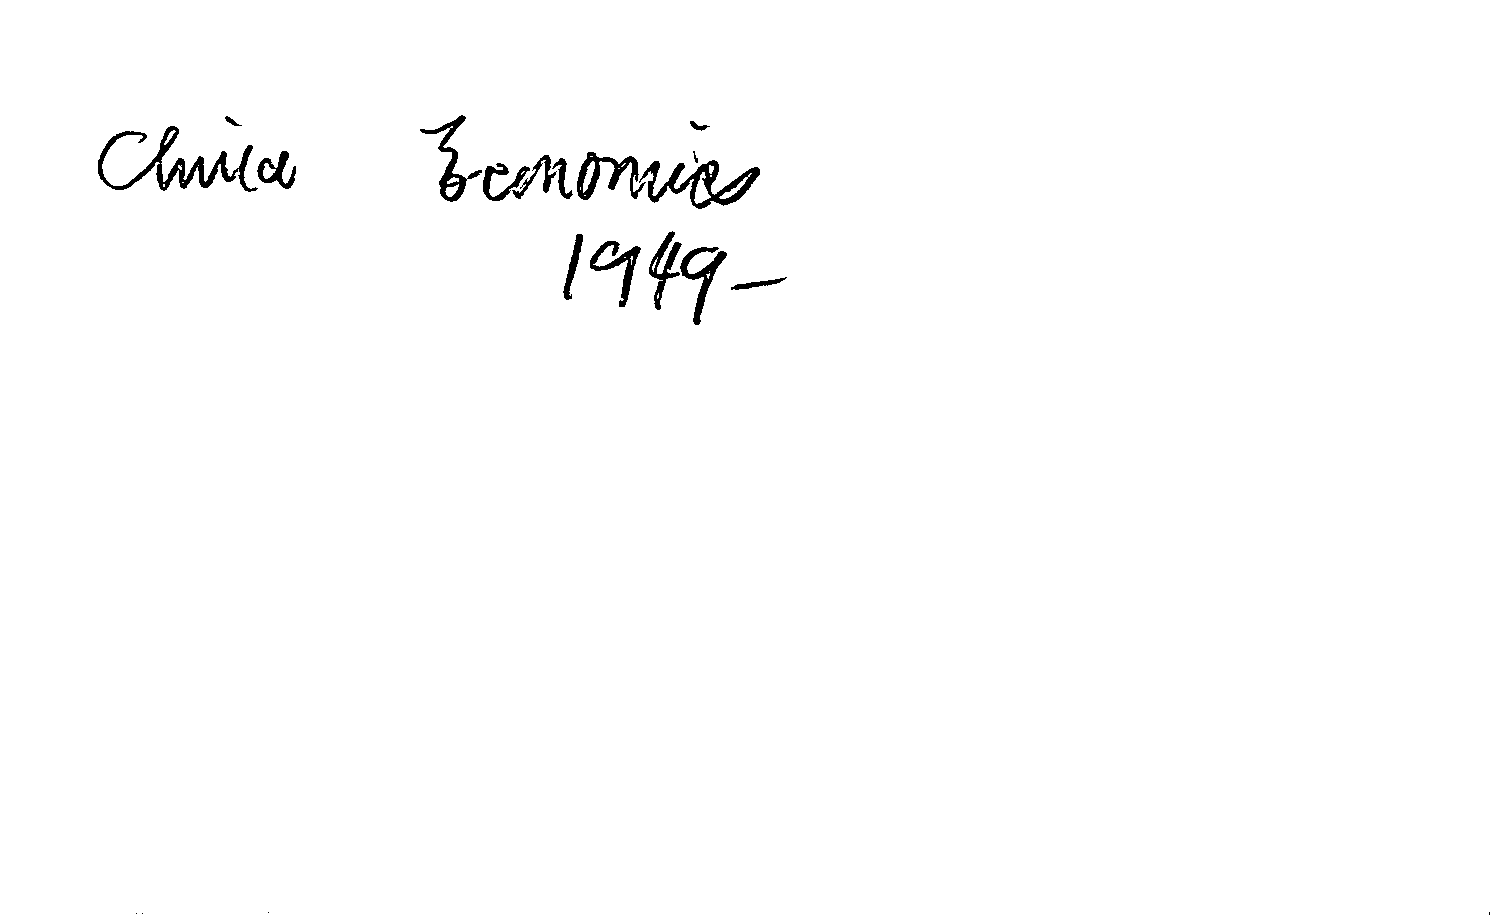 China Economics
1949-